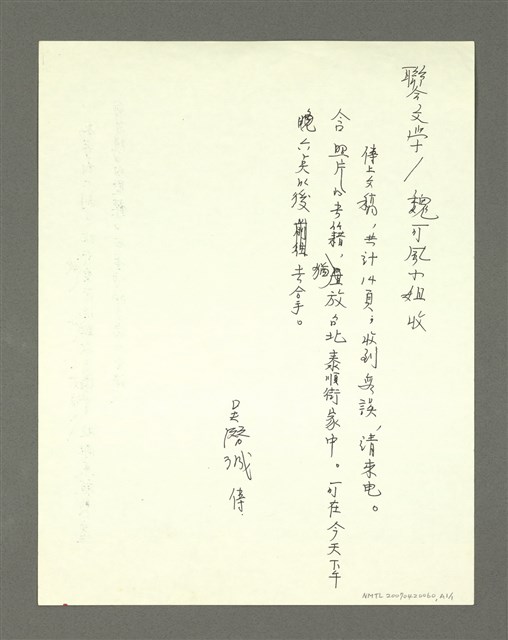 聯合文學／魏可風小姐收
傳上文稿，共計14頁；收到無誤，請來电。
含照片的書籍，擱放台北泰順街家中。可在今天下午
晚六点以後去拿。
吳啓誠 傳.
NMTL 20090420060, A1/1